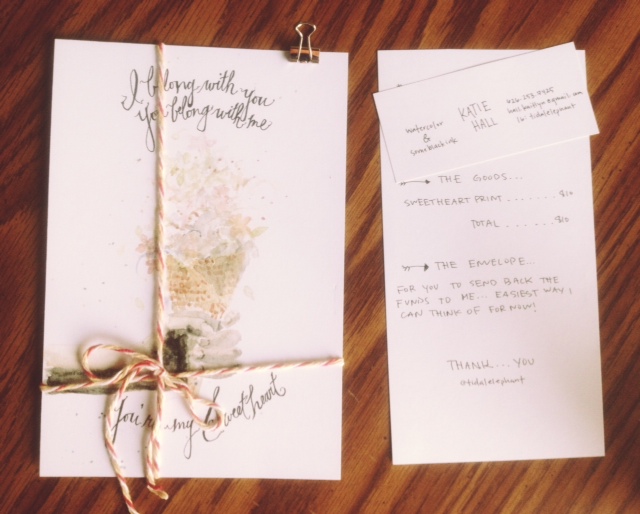 I belong with you
you belong with me
You're my Sweetheart
watercolor
&
KATIE
HALL
THE GOODS...
SWEETHEART PRINT ....... $10
TOTAL ...... $10
THE ENVELOPE...
FOR YOU TO SEND BACK THE
FUNDS TO ME... EASIEST WAY I
CAN THINK OF FOR NOW!
THANK... YOU
@tidalelephant